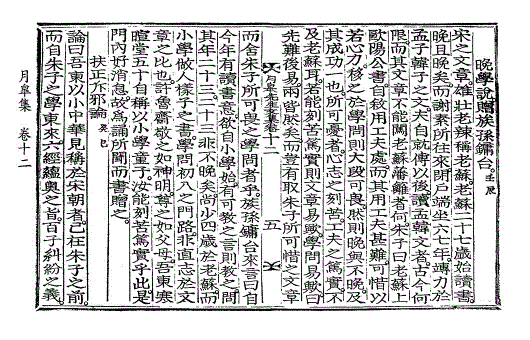 晩學說贈族孫鏞台 壬辰
宋之文章雄壯老辣稱老蘇老蘇二十七歲始讀書
晩且晩矣而謝素所往來閉戶端坐六七年專力於
孟子韓子之文夫自就傅以後讀孟韓文者古今何
限而其文章不能闖老蘇藩籬者何朱子曰老蘇上
歐陽公書自敘用工夫處而其用工夫甚難可惜以
若心力移之於學問則大段可畏然則晩與不晩及
其成功一也所可憂者心志之刻苦工夫之篤實不
及老蘇耳若能刻苦篤實則文章易歟學問易歟曰
先難後易兩皆然矣而豈有取朱子所可惜之文章
月皐先生文集卷十二 五
而舍朱子所可畏之學問者乎族孫鏞台來言曰自
今年有讀書意欲自小學始有可敎之言則敎之問
其年二十三二十三非不晩矣尙少四歲於老蘇而
小學做人樣子之書學問初八之門路非直志於文
章之比也許魯齋敬之如神明尊之如父母吾東寒
暄堂五十自稱以小學童子汝能刻苦篤實乎此是
門內好消息故爲誦所聞而書贈之
扶正斥邪論 癸巳
論曰吾東以小中華見稱於宋朝者已在朱子之前
而自朱子之學東來六經蘊奧之旨百子糾紛之義
月皐集 卷十二